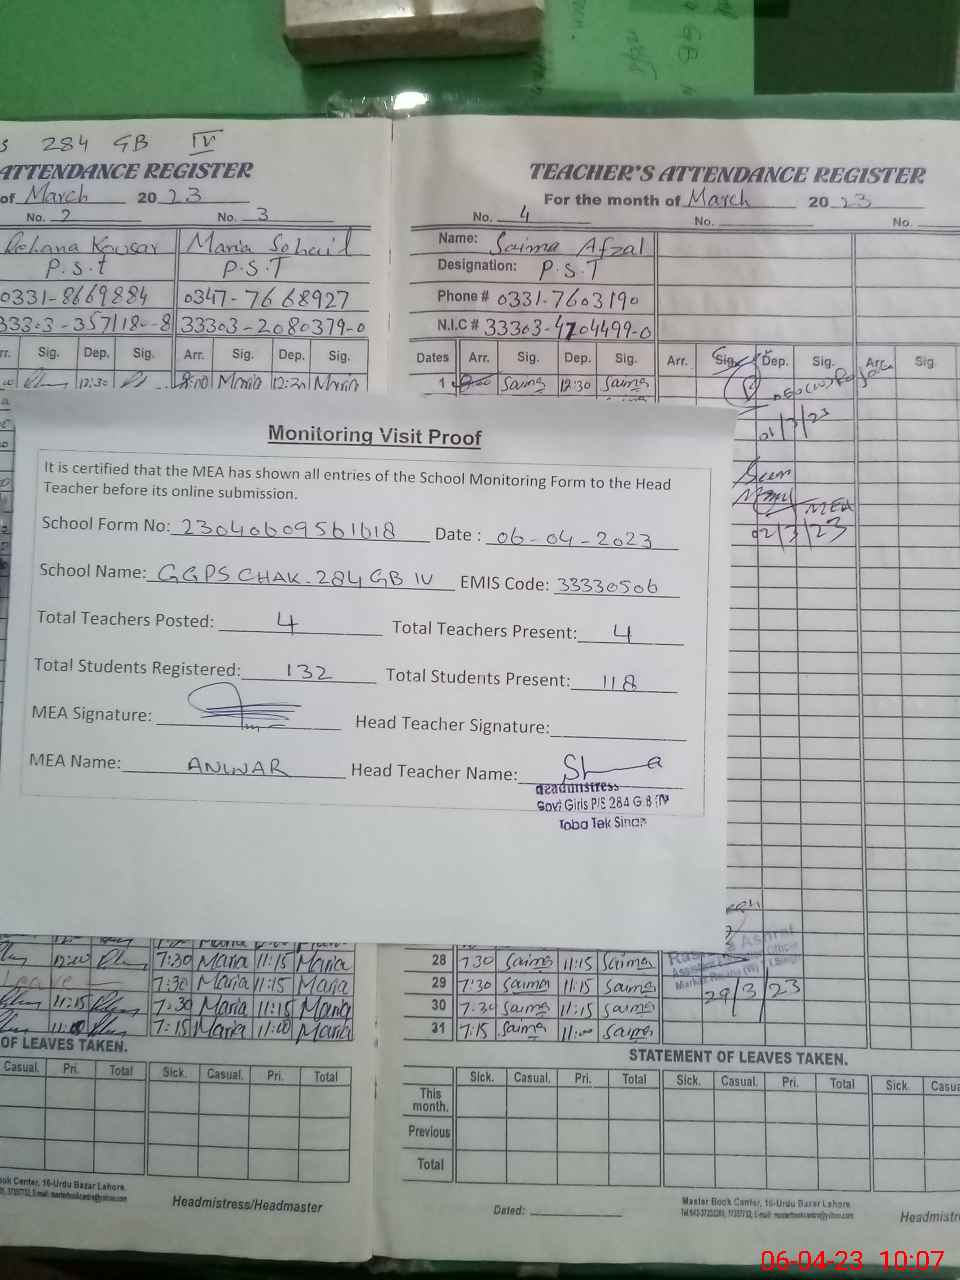 284 GB IV
ATTENDANCE REGISTER
of March 2023
No. 2 No. 3
Rehana Kousar Maria Sohail
P.S.t P.S.T
0331-8669884 0347-7668927
33303-2080379-0
Sig. Dep. Sig. Arr. Sig. Dep. Sig.
12:30 8:00 Maria 12:30 Maria
TEACHER'S ATTENDANCE REGISTER
For the month of March 2023
No. 4 No. No.
Name: Saima Afzal
Designation: P.S.T
Phone # 0331-7603190
N.I.C # 33303-4704499-0
Dates Arr. Sig. Dep. Sig. Arr. Sig. Dep. Sig. Arr. Sig.
1 8:00 Saima 12:30 Saima
01/3/23
MEA
02/3/23
Monitoring Visit Proof
It is certified that the MEA has shown all entries of the School Monitoring Form to the Head
Teacher before its online submission.
School Form No: 23040609561618 Date : 06-04-2023
School Name: GGPS CHAK.284 GB IV EMIS Code: 33330506
Total Teachers Posted: 4 Total Teachers Present: 4
Total Students Registered: 132 Total Students Present: 118
MEA Signature: Head Teacher Signature:
MEA Name: ANWAR Head Teacher Name:
Headmistress
Govt Girls P/S 284 G.B IV
Toba Tek Singh
12:00 7:30 Maria 11:15 Maria
Leave 7:30 Maria 11:15 Maria
11:15 7:30 Maria 11:15 Maria
11:00 7:15 Maria 11:00 Maria
28 7:30 Saima 11:15 Saima
29 7:30 Saima 11:15 Saima
30 7:30 Saima 11:15 Saima
31 7:15 Saima 11:00 Saima
29/3/23
OF LEAVES TAKEN.
Casual. Pri. Total Sick. Casual. Pri. Total
STATEMENT OF LEAVES TAKEN.
Sick. Casual. Pri. Total Sick. Casual. Pri. Total Sick.
This
month.
Previous
Total
Center, 16-Urdu Bazar Lahore.
Headmistress/Headmaster
Dated:
Master Book Center, 16-Urdu Bazar Lahore.
06-04-23 10:07